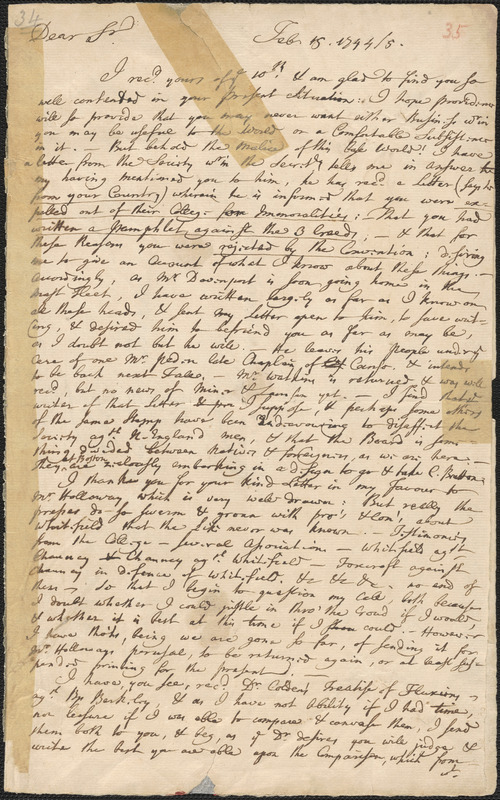 34
35
Dear Sr. Feb. 15. 1744/5.
I recd. yours of ye 10th. & am glad to find you so
well contented in your present Situation: I hope providence
will so provide that you may never want either Business wrin
you may be useful to the World or a Comfortable Subsistence
in it. — But behold the Malice of this base World! I have
a letter from the Society wrin the Secrety. tells me in answer to
my having mentioned you to him, he has recd. a Letter (says he
from your Country) wherein he is informed that you were ex-
pelled out of their College for Immoralities: That you had
written a Pamphlet against the 3 Creeds, — & that for
these Reasons you were rejected by the Convention; desiring
me to give an account of what I know about these things. —
accordingly, as Mr. Davenport is soon going home in the
mast Fleet, I have written largely as far as I know on
all these heads, & sent my Letter open to him, to save writ-
ing, & desired him to befriend you as far as may be,
as I doubt not but he will. — He leaves his People under ye
Care of one Mr. late Chaplain of & intends
to be back next Fall. — Mr. Watkins is returned & was well
recd, but no news of Miner & yet. — I find that ye
writer of that Letter & I suppose, & perhaps some others
of the same Stamp have been Endeavouring to disaffect the
Society agst. N-England men, & that the Board is some-
thing divided between Natives & foreigners, as we are here. —
They at Boston are zealously embarking in a design to go & take C. Bretton.
I thank you for your kind Letter in my favour to
Mr. Holloway, which is very well drawn: But really the
presses do so swarm & groan with pro's & Con's about
Whitfield that the like never was known. — Testimonies
from the College — several Associations — Whitfield agst
Chauncy — Chauncy agt. Whitfield — Foxcroft against
Chauncy in defence of Whitfield. &c &c &c. no end of
them — so that I begin to question my Call, both because
I doubt whether I could justle in thro' the Croud if I would
& whether it is best at this time if I could. — However
I have tho'ts, being we are gone so far, of sending it for
Mr. Holloways perusal, to be returned again, or at least sus-
pended printing for the present. —
I have, you see, recd. Dr. Colden's Treatise of Fluxions
agt. Bp Berkley, & as I have not Ability if I had time,
nor leasure if I was able to compare & canvass them, I send
them both to you, & beg, as ye Dr desires you will judge &
write the best you are able upon the Comparison, which from